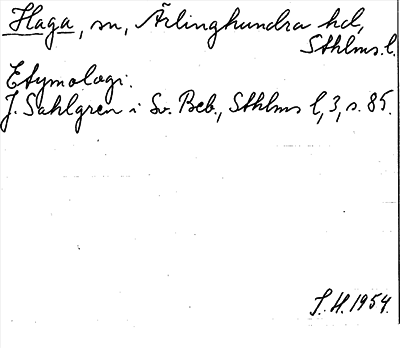 Haga, sn, Ärlinghundra hd,
Sthlms. l.
Etymologi:
J. Sahlgren i Sv. Beb., Sthlms l, 3, s. 85.
S. H. 1954.